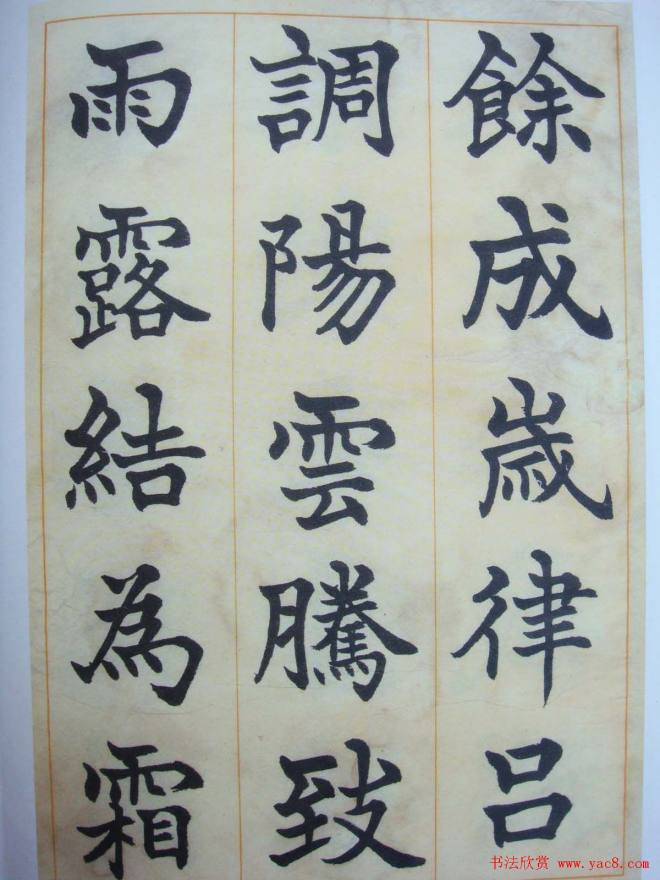 餘成歲律呂
調陽雲騰致
雨露結為霜
书法欣赏 www.yac8.com